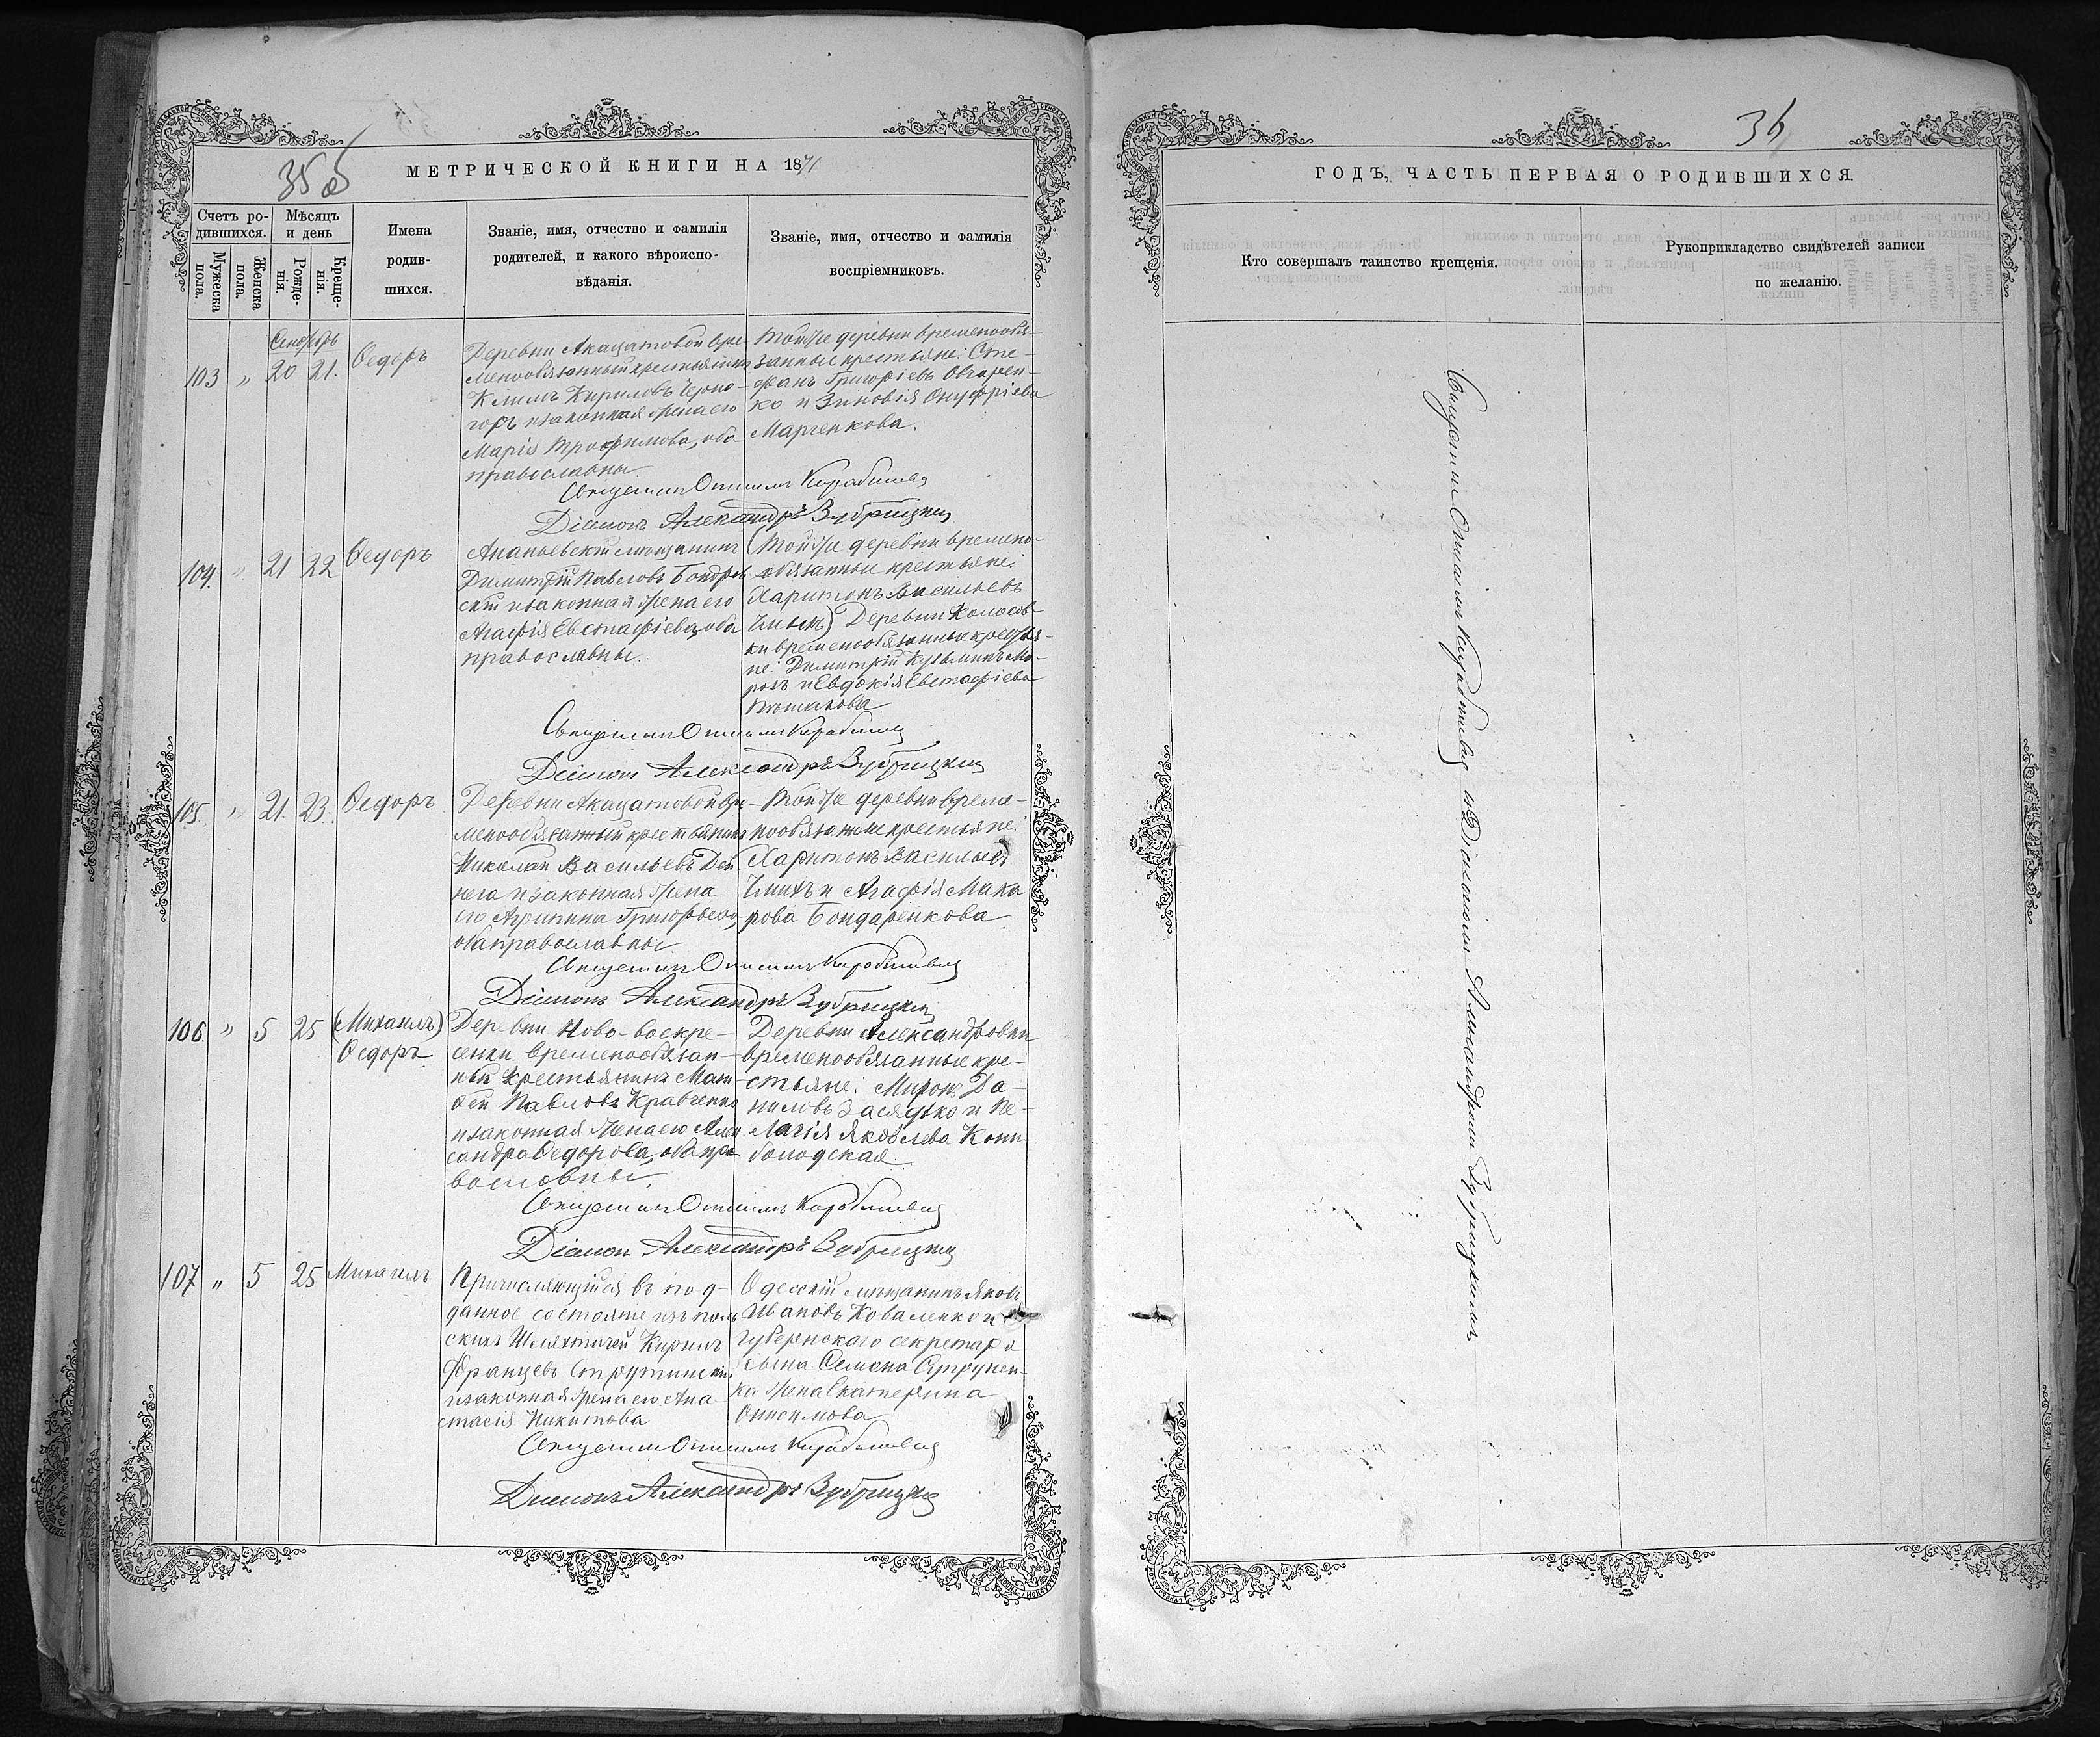 35 об
МЕТРИЧЕСКОЙ КНИГИ НА 1871
Счетъ ро-
дившихся.
Мужеска
пола.
Женска
пола.
Мѣсяцъ
и день
Рожде-
нія.
Креще-
нія.
Имена
родив-
шихся.
Званіе, имя, отчество и фамилія
родителей, и какого вѣроиспо-
вѣданія.
Званіе, имя, отчество и фамилія
воспріемниковъ.
Сентябрь
103 " 20 21. Ѳедоръ
Деревни Акацатовой вре-
менообязанный крестьянинъ
Климъ Кириловъ Черно-
горъ и законная жена его
Марія Трофимова, оба
православны
Той же деревни временообя-
занные крестьяне: Сте-
фанъ Григоріевъ Овчарен-
ко и Зиновія Онуфріева
Марченкова.
Священникъ Онисимъ
Діаконъ Александръ Зубрицкій
104. " 21 22 Ѳедоръ
Ананьевскій мѣщанинъ
Димитрій Павловъ
скій и законная жена его
Агафія Евстафіева, оба
православны.
(Той же деревни времено-
обязанные крестьяне:
Харитонъ Васильевъ
Чмыхъ) Деревни Колосов-
ки временообязанные кресть-
не: Димитрій Кузьминъ Мо-
розъ и Евдокія Евстафіева
Священникъ Онисимъ
Діаконъ Александръ Зубрицкій
105. " 21. 23. Ѳедоръ
Деревни Акацатовой вре-
менообязанный крестьянинъ
Николай Васильевъ Дей
нега и законная жена
его Агрипина Григорьева,
оба православны
Той же деревни време-
нообязанные крестьяне:
Харитонъ Васильевъ
Чмыхъ и Агафія Мака
рова Бондаренкова
Священникъ Онисимъ
Діаконъ Александръ Зубрицкій
106 " 5 25 (Михаилъ)
Ѳедоръ
Деревни Ново-воскре-
сенки временообязан-
ный крестьянинъ Мат-
ѳей Павловъ Кравченко
и законная жена его Алек
сандра Ѳедорова, оба пра-
вославны.
Деревни Александровки
временообязанные кре-
стьяне: Миронъ Да-
ниловъ Засядько и Пе-
лагія Яковлева
Священникъ Онисимъ
Діаконъ Александръ Зубрицкій
107 " 5 25 Михаилъ
Причисляющійся въ под-
данное состояніе изъ поль
скихъ Шляхтичей Кирилъ
Францевъ
и законная жена его Ана-
стасія Никитова
Одесскій мѣщанинъ Яковъ
Ивановъ Коваленко и
губернскаго секретаря
Семена
ка жена Екатерина
Онисимова
Священникъ Онисимъ
Діаконъ Александръ Зубрицкій
36
ГОДЪ, ЧАСТЬ ПЕРВАЯ О РОДИВШИХСЯ.
Кто совершалъ таинство крещенія.
Рукоприкладство свидѣтелей записи
по желанію.
Священникъ Онисимъ съ Діакономъ Александромъ Зубрицкимъ